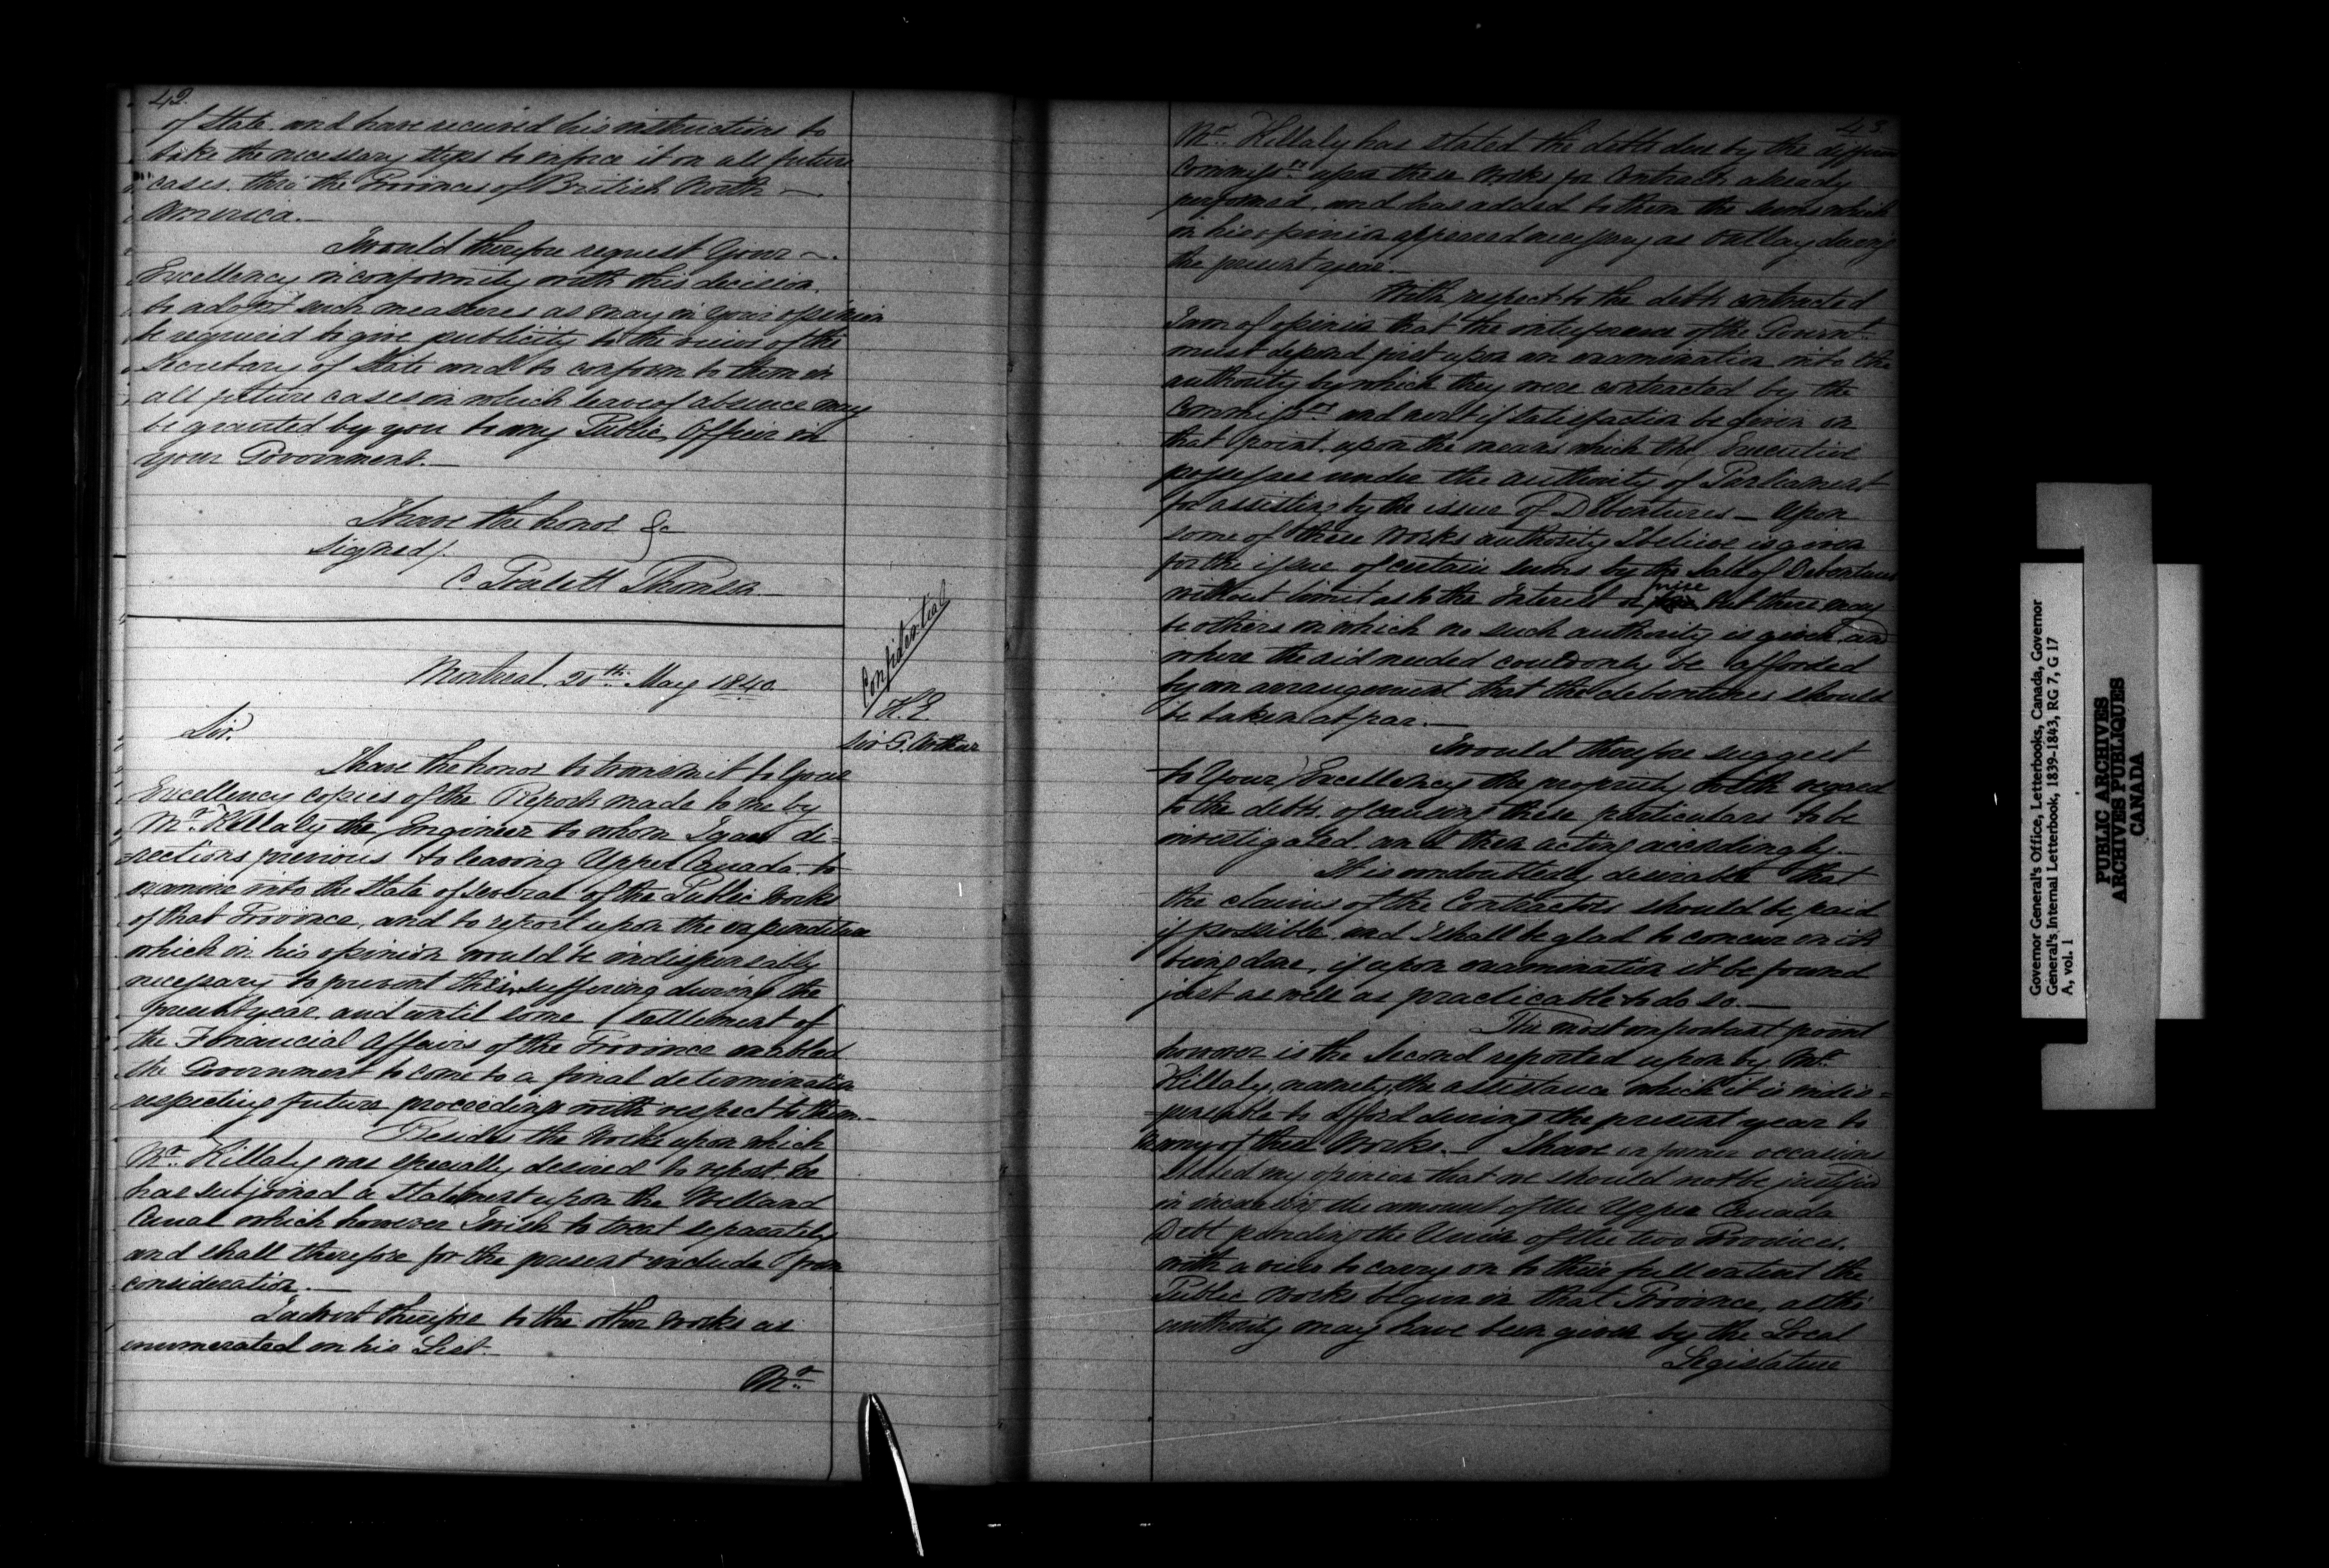 42.
of State, and have received his instructions to
take the necessary steps to enforce it on all future
cases, thro' the Provinces of British North
America.
I would therefore request Your
Excellency in conformity with this decision,
to adopt such measures as may in your opinion
be required to give publicity to the views of the
Secretary of State and to conform to them in
all future cases in which leave of absence may
be granted by you to any Public Officer in
your Government.
I have the honor &c
Signed/.
C Poulett Thomson
Confidential
Montreal. 20th May 1840
H.E.
Sir G. Arthur
Sir.
I have the honor to transmit to Your
Excellency copies of the Report made to me by
Mr. Killaly the Engineer to whom I gave di=
=rections previous to leaving Upper Canada to
examine into the State of several of the Public Works
of that Province, and to report upon the expenditure
which in his opinion would be indispensably
necessary to prevent their suffering during the
present year and until some settlement of
the Financial Affairs of the Province enabled
the Government to come to a final determination
respecting future proceedings with respect to them.
Besides the Works upon which
Mr. Killaly was specially desired to report, he
has subjoined a statement upon the Welland
Canal which however I wish to treat separately
and shall therefore for the present exclude from
consideration.
I advert therefore to the other Works as
enumerated on his List.
Mr.
43.
Mr. Killaly has stated the debts due by the different
Commissrs upon these Works for Contracts already
performed, and has added to them the sums which
in his opinion appeared necessary as Outlay during
the present year.
With respect to the debts contracted
I am of opinion that the interference of the Governt
must depend first upon an examination into the
authority by which they were contracted by the
Commissrs and next if satisfaction be given on
that point, upon the means which the Executive
possesses under the authority of Parliament
for assisting by the issue of Debentures — Upon
some of these Works authority I believe is given
for the issue of certain sums by the Sale of Debentures
without limit as to the Interest or price But there may
be others in which no such authority is given, and
where the aid needed could only be afforded
by an arrangement that the debentures should
be taken at par.
I would therefore suggest
to Your Excellency the propriety with regard
to the debts, of causing these particulars to be
investigated, and then acting accordingly.
It is undoubtedly desirable that
the claims of the Contractors should be paid
if possible, and I shall be glad to concur in its
being done, if upon examination it be found
just as well as practicable to do so.
The most important point
however is the Second reported upon by Mr.
Killaly, namely, the assistance which it is indis=
=pensable to afford during the present year to
many of these Works. I have on former occasions
stated my opinion that we should not be justified
in increasing the amount of the Upper Canada
Debt pending the Union of the two Provinces,
with a view to carry on to their full extent the
Public Works begun in that Province, altho'
authority may have been given by the Local
Legislature
Governor General's Office, Letterbooks, Canada, Governor
General's Internal Letterbook, 1839-1843, RG 7, G 17
A, vol. 1
PUBLIC ARCHIVES
ARCHIVES PUBLIQUES
CANADA